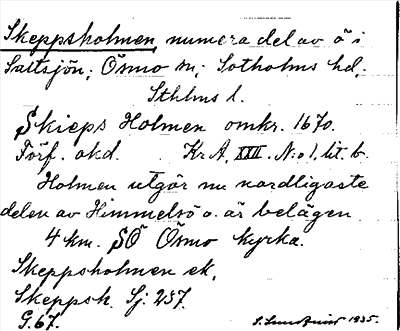 Skeppsholmen, numera del av ö i
Saltsjön; Ösmo sn; Sotholms hd,
Sthlms l.
Skieps Holmen omkr. 1670.
Förf. okd. Kr A, XXII. N:o 1, lit. b.
Holmen utgör nu nordligaste
delen av Himmelsö o. är belägen
4 km. SÖ Ösmo kyrka.
Skeppsholmen ek.
Skeppsh. Sj. 257.
G. 67. 1935.